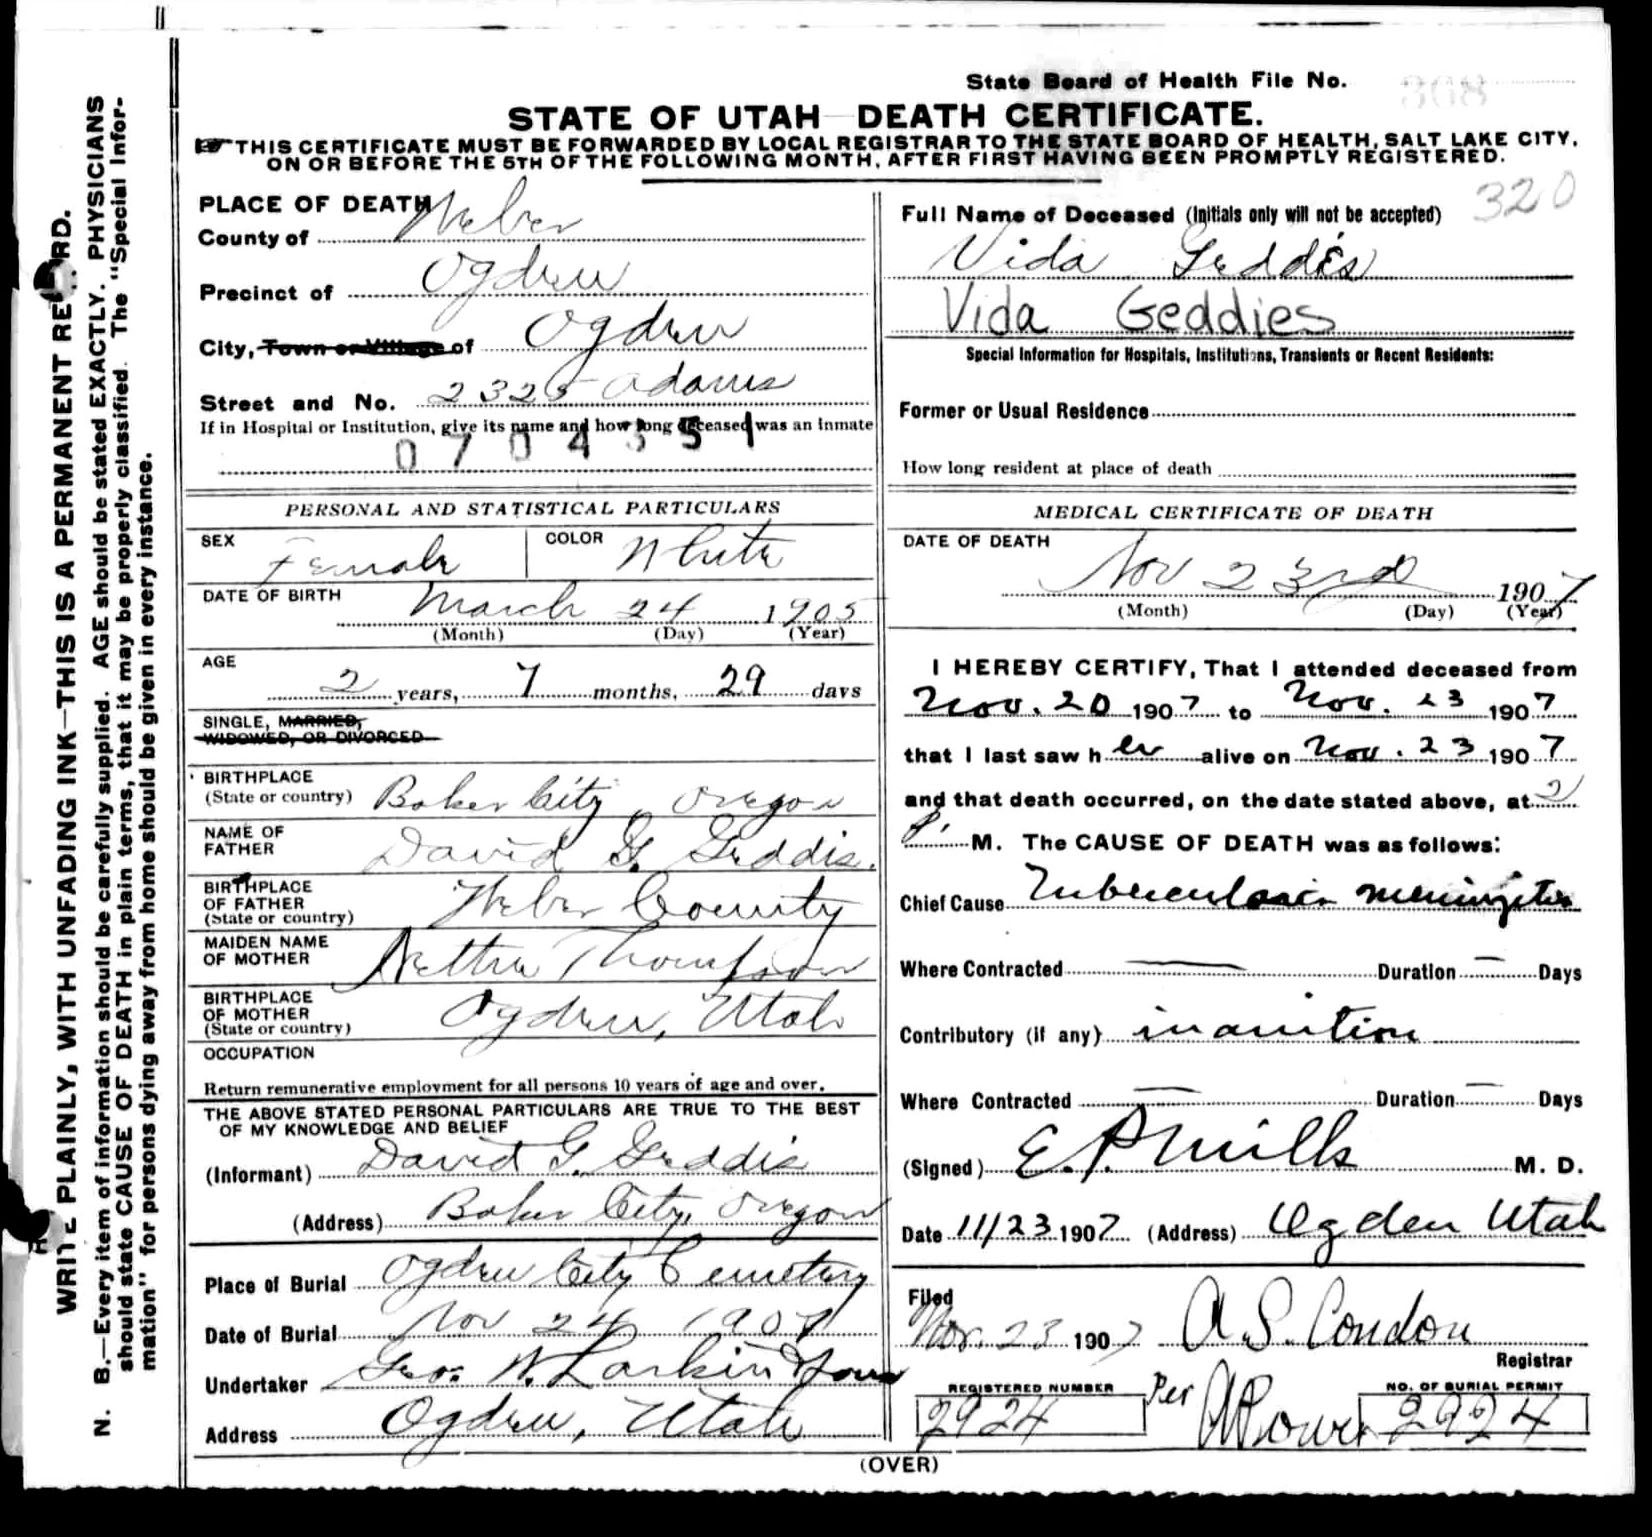 State Board of Health File No. 308
STATE OF UTAH DEATH CERTIFICATE.
THIS CERTIFICATE MUST BE FORWARDED BY LOCAL REGISTRAR TO THE STATE BOARD OF HEALTH, SALT LAKE CITY,
ON OR BEFORE THE 5TH OF THE FOLLOWING MONTH, AFTER FIRST HAVING BEEN PROMPTLY REGISTERED.
WRITE PLAINLY, WITH UNFADING INK—THIS IS A PERMANENT RECORD.
N. B.—Every item of information should be carefully supplied. AGE should be stated EXACTLY. PHYSICIANS
should state CAUSE OF DEATH in plain terms, that it may be properly classified. The "Special Infor-
mation" for persons dying away from home should be given in every instance.
PLACE OF DEATH
County of Weber
Precinct of Ogden
City, Town or Village of Ogden
Street and No. 2325 Adams
If in Hospital or Institution, give its name and how long deceased was an inmate
0704351
PERSONAL AND STATISTICAL PARTICULARS
SEX Female COLOR White
DATE OF BIRTH March 24 1905
(Month) (Day) (Year)
AGE 2 years, 7 months, 29 days
SINGLE, MARRIED,
WIDOWED, OR DIVORCED
BIRTHPLACE
(State or country) Baker City, Oregon
NAME OF
FATHER David G. Geddis.
BIRTHPLACE
OF FATHER
(State or country) Weber County
MAIDEN NAME
OF MOTHER Nettie Thompson
BIRTHPLACE
OF MOTHER
(State or country) Ogden, Utah
OCCUPATION
Return remunerative employment for all persons 10 years of age and over.
THE ABOVE STATED PERSONAL PARTICULARS ARE TRUE TO THE BEST
OF MY KNOWLEDGE AND BELIEF
(Informant) David G. Geddis
(Address) Baker City, Oregon
Place of Burial Ogden City Cemetery
Date of Burial Nov 24 1907
Undertaker Geo. W. Larkin & Sons
Address Ogden, Utah
(OVER)
320
Full Name of Deceased (Initials only will not be accepted)
Vida Geddis
Vida Geddies
Special Information for Hospitals, Institutions, Transients or Recent Residents:
Former or Usual Residence
How long resident at place of death
MEDICAL CERTIFICATE OF DEATH
DATE OF DEATH
Nov 23rd 1907
(Month) (Day) (Year)
I HEREBY CERTIFY, That I attended deceased from
Nov. 20 1907 to Nov. 23 1907
that I last saw her alive on Nov. 23 1907
and that death occurred, on the date stated above, at 2
P. M. The CAUSE OF DEATH was as follows:
Chief Cause meningitis
Where Contracted — Duration — Days
Contributory (if any) inanition
Where Contracted — Duration — Days
(Signed) E. P. Mills M. D.
Date 11/23 1907 (Address) Ogden Utah
Filed
Nov. 23 1907 A. S. Condon
Registrar
REGISTERED NUMBER
2924
Per
NO. OF BURIAL PERMIT
2924